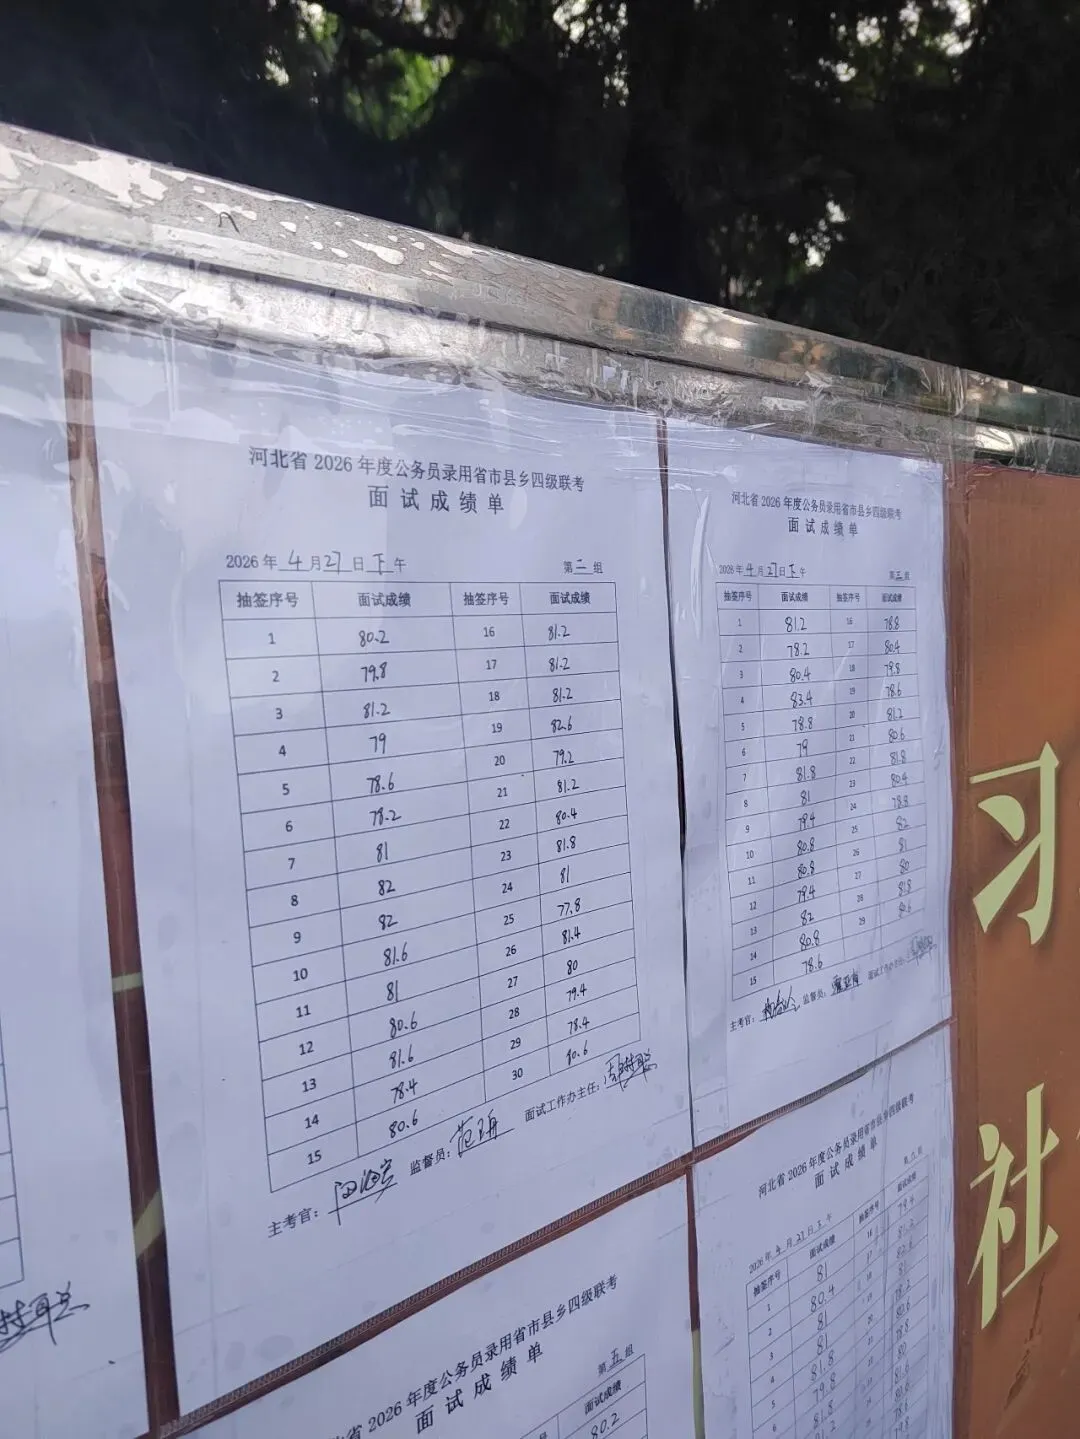 河北省 2026 年度公务员录用省市县乡四级联考
面试成绩单
2026 年 4 月 27 日 下 午 第 二 组
抽签序号 面试成绩 抽签序号 面试成绩
1 80.2 16 81.2
2 79.8 17 81.2
3 81.2 18 81.2
4 79 19 82.6
5 78.6 20 79.2
6 78.2 21 81.2
7 81 22 80.4
8 82 23 81.8
9 82 24 81
10 81.6 25 77.8
11 81 26 81.4
12 80.6 27 80
13 81.6 28 79.4
14 78.4 29 78.4
15 80.6 30 80.6
主考官: 监督员: 面试工作办主任:
河北省 2026 年度公务员录用省市县乡四级联考
面试成绩单
2026 年 4 月 27 日 下 午 第 三 组
抽签序号 面试成绩 抽签序号 面试成绩
1 81.2 16 78.8
2 78.2 17 80.4
3 80.4 18 79.8
4 83.4 19 78.6
5 78.8 20 81.2
6 79 21 80.6
7 81.8 22 81.8
8 81 23 80.4
9 79.4 24 78.8
10 80.8 25 82
11 80.8 26 81
12 79.4 27 80
13 82 28 81.8
14 80.8 29
15 78.6
主考官: 监督员: 面试工作办主任:
河北省 2026 年度公务员录用省市县乡四级联考
面试成绩单
第 五 组
面试成绩
80.2
河北省 2026 年度公务员录用省市县乡四级联考
面试成绩单
2026 年 4 月 27 日 下 午
抽签序号 面试成绩 抽签序号 面试成绩
1 81 16 79.4
2 80.4 17
3 81
4 81
5 81.8
6 79.8
81.8
习
社